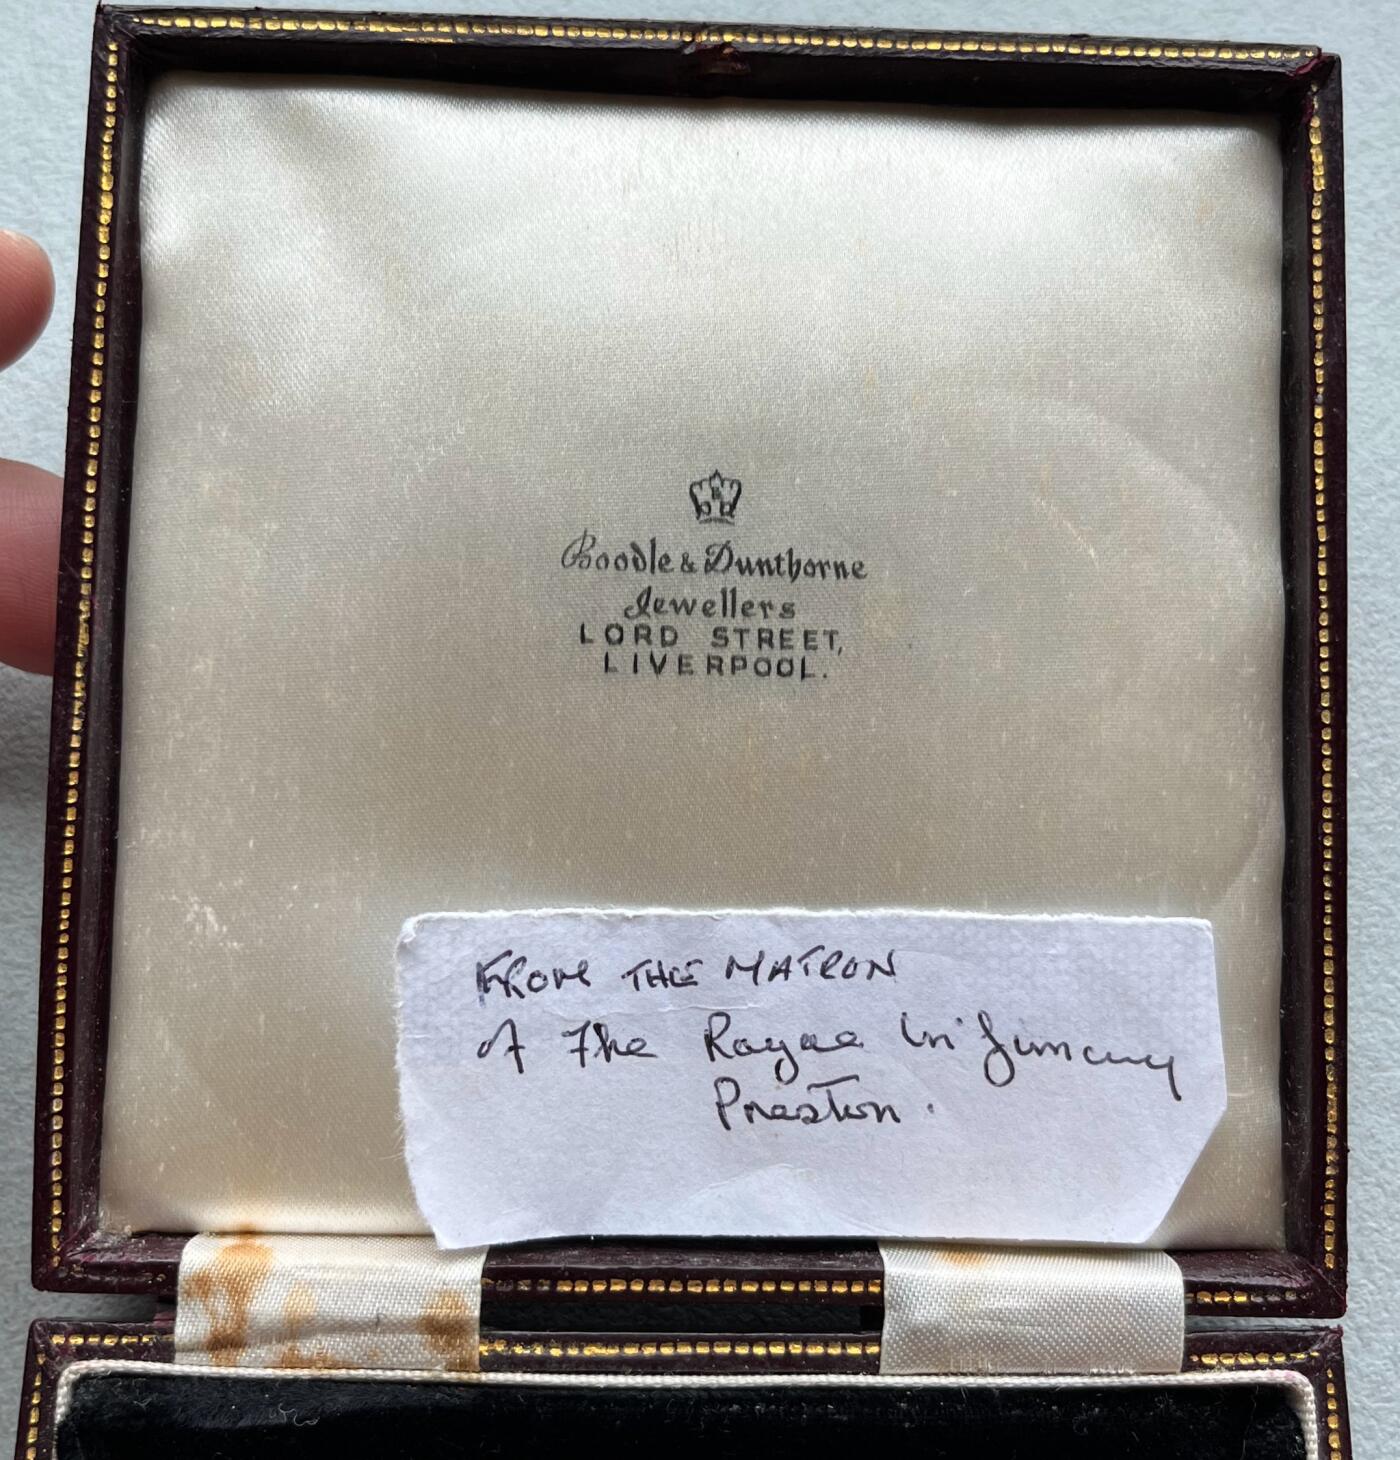 Boodle & Dunthorne
Jewellers
LORD STREET,
LIVERPOOL.
FROM THE MATRON
of The Royal Infirmary
Preston.